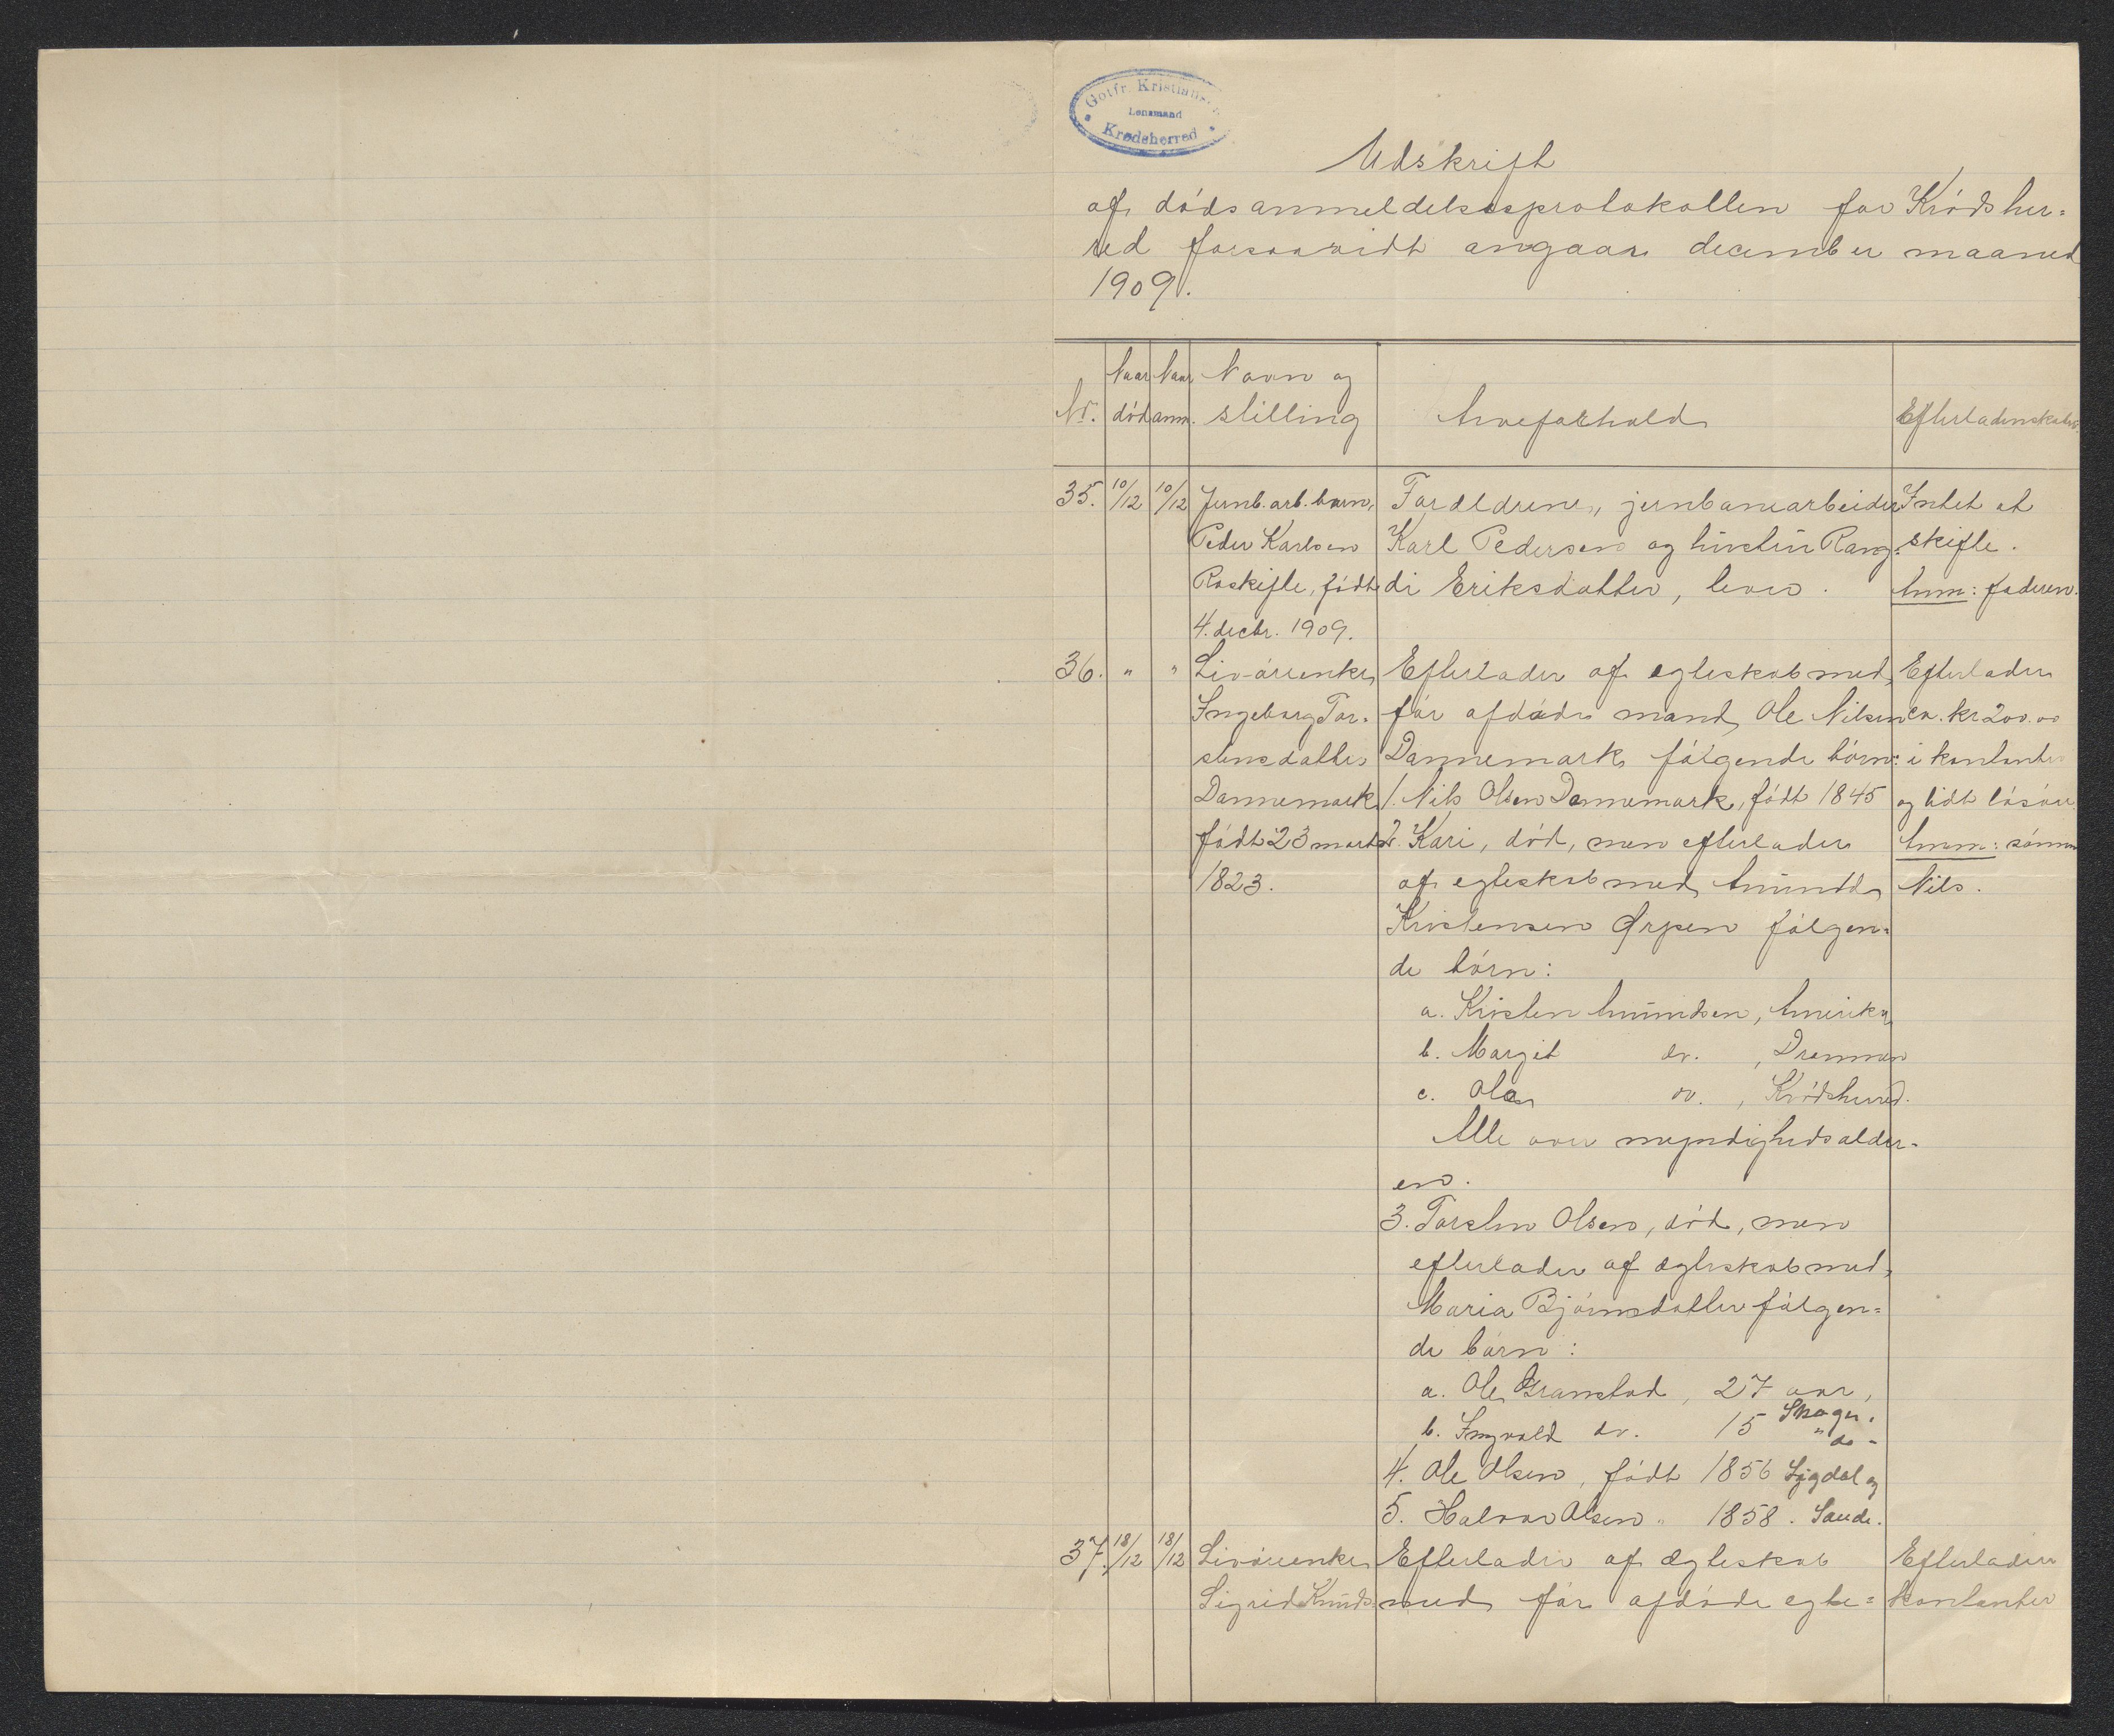 Gotfr. Kristiansen
Lensmand
Krødsherred
Udskrift
af dødsanmeldelsesprotokollen for Krødsher=
red forsaavidt angaar december maaned
1909.
Nr. Naar død Naar anm. Navn og stilling Arveforhold Efterladenskaber
35. 10/12 10/12 Jernb.arb. barn, Forældrene, jernbanearbeider Intet at
Peder Karlsen Karl Pedersen og hustru Rang= skifte.
Roskifte, født di Eriksdatter, lever. Anm: faderen.
4. decbr. 1909.
36. " " Livørenke Efterlader af egteskab med Efterlader
Ingeborg Tor= før afdøde mand Ole Nilsen ca. kr 200.00
stensdatter Dannemark følgende børn: i kontanter
Dannemark 1. Nils Olsen Dannemark, født 1845 og lidt løsøre.
født 23 marts 2. Kari, død, men efterlader Anm: sønnen
1823. af egteskab med Amund Nils.
Kristensen Ørpen følgen=
de børn:
a. Kristen Amundsen, Amerika
b. Margit do. , Drammen
c. Ola do. , Krødsherred.
Alle over myndighedsalder=
en.
3. Torsten Olsen, død, men
efterlader af ægteskab med
Maria Bjørnsdatter følgen=
de børn:
a. Ole Granstad, 27 aar, Skoger.
b. Ingvald do. 15 " do -
4. Ole Olsen, født 1856 Sigdal og
5. Halvor Olsen " 1858. Sande.
37. 18/12 18/12 Livørenke Efterlader af ægteskab Efterlader
Sigrid Knuds= med før afdøde egte= kontanter